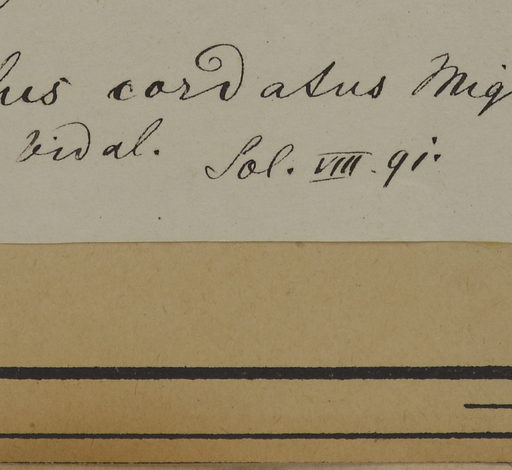 lus cordatus Mig
Vidal. Sol. VIII. 91.